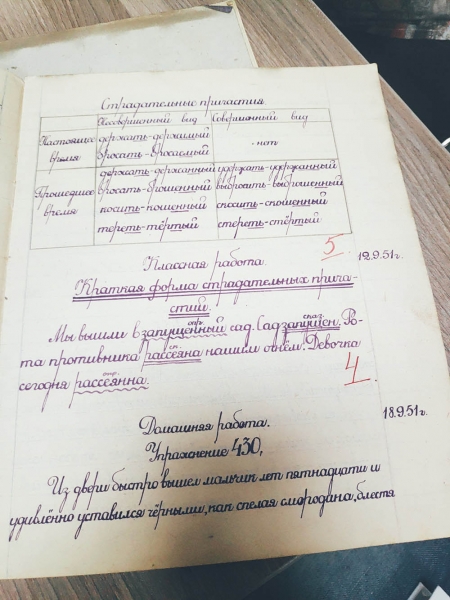 Страдательные причастия
Несовершенный вид Совершенный вид
Настоящее держать-держимый
время бросать-бросаемый - нет
держать-держанный удержать-удержанный
Прошедшее бросать-брошенный выбросить-выброшенный
время носить-ношенный сносить-сношенный
тереть-тёртый стереть-стёртый
5
Классная работа. 12.9.51г.
Краткая форма страдательных прича-
стий.
опр. сказ.
Мы вышли в запущенный сад. Сад запущен. Ро-
та противника рассеяна нашим огнём. Девочка
сегодня рассеянна.
4
Домашняя работа. 18.9.51г.
Упражнение 430,
Из двери быстро вышел мальчик лет пятнадцати и
удивлённо уставился чёрными, как спелая смородина, блестя